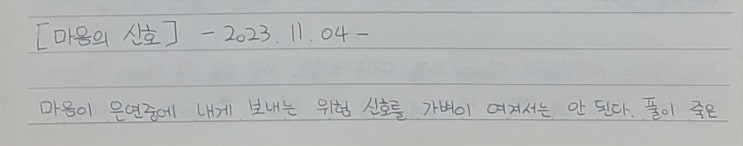 [마음의 신호] - 2023. 11. 04 -
마음이 은연중에 내게 보내는 위험 신호를 가벼이 여겨서는 안 된다. 풀이 죽은